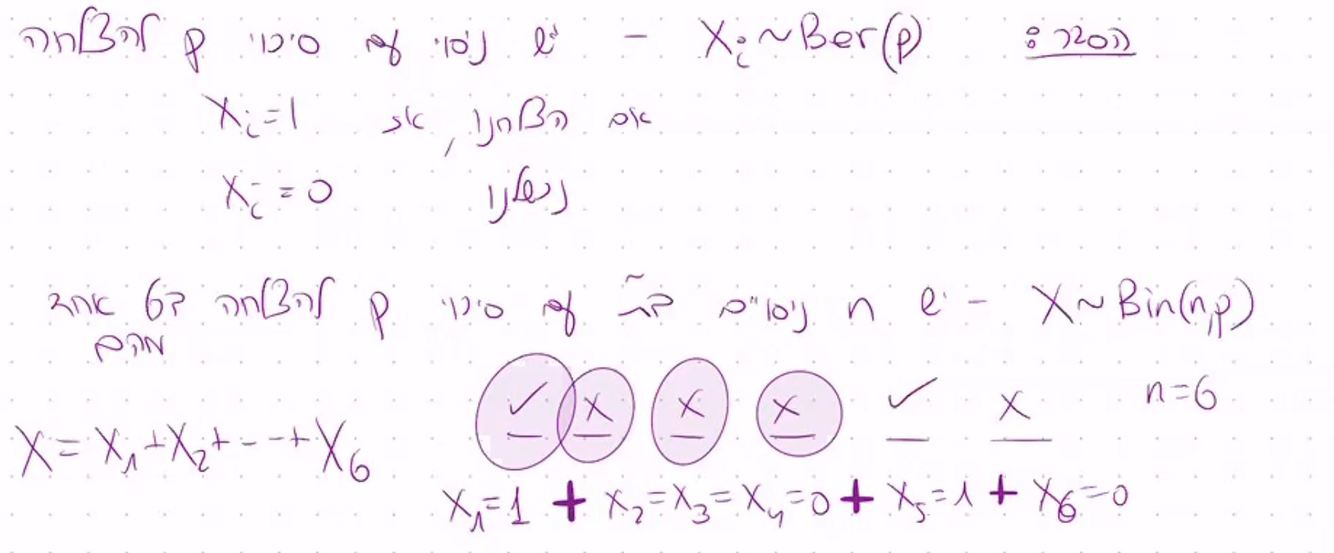 הסבר: X_i ~ Ber(p) – יש ניסוי עם סיכוי p להצלחה
אם הצלחנו, אז X_i = 1
נכשלנו X_i = 0
X ~ Bin(n,p) – יש n ניסויים ב"ת עם סיכוי p להצלחה בכל אחד
מהם
n=6
✓ x x x ✓ x
X = X_1 + X_2 + --+ X_6
X_1=1 + X_2=X_3=X_4=0 + X_5=1 + X_6=0